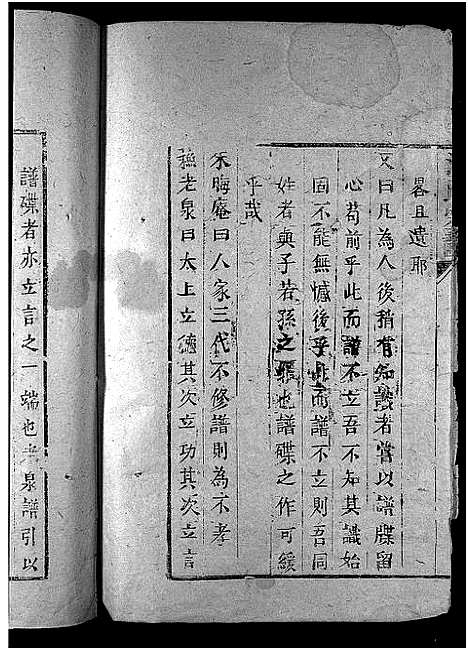 畧且遺耶
又曰凡為人後稍有知識者當以譜牒留
心苟前乎此而譜不立吾不知其識始
固不能無憾後乎此而譜不立則吾同
姓者與子若孫之責也譜碟之作可緩
乎哉
朱晦庵曰人家三代不修譜則為不孝
蘇老泉曰太上立德其次立功其次立言
譜碟者亦立言之一端也老泉譜引以